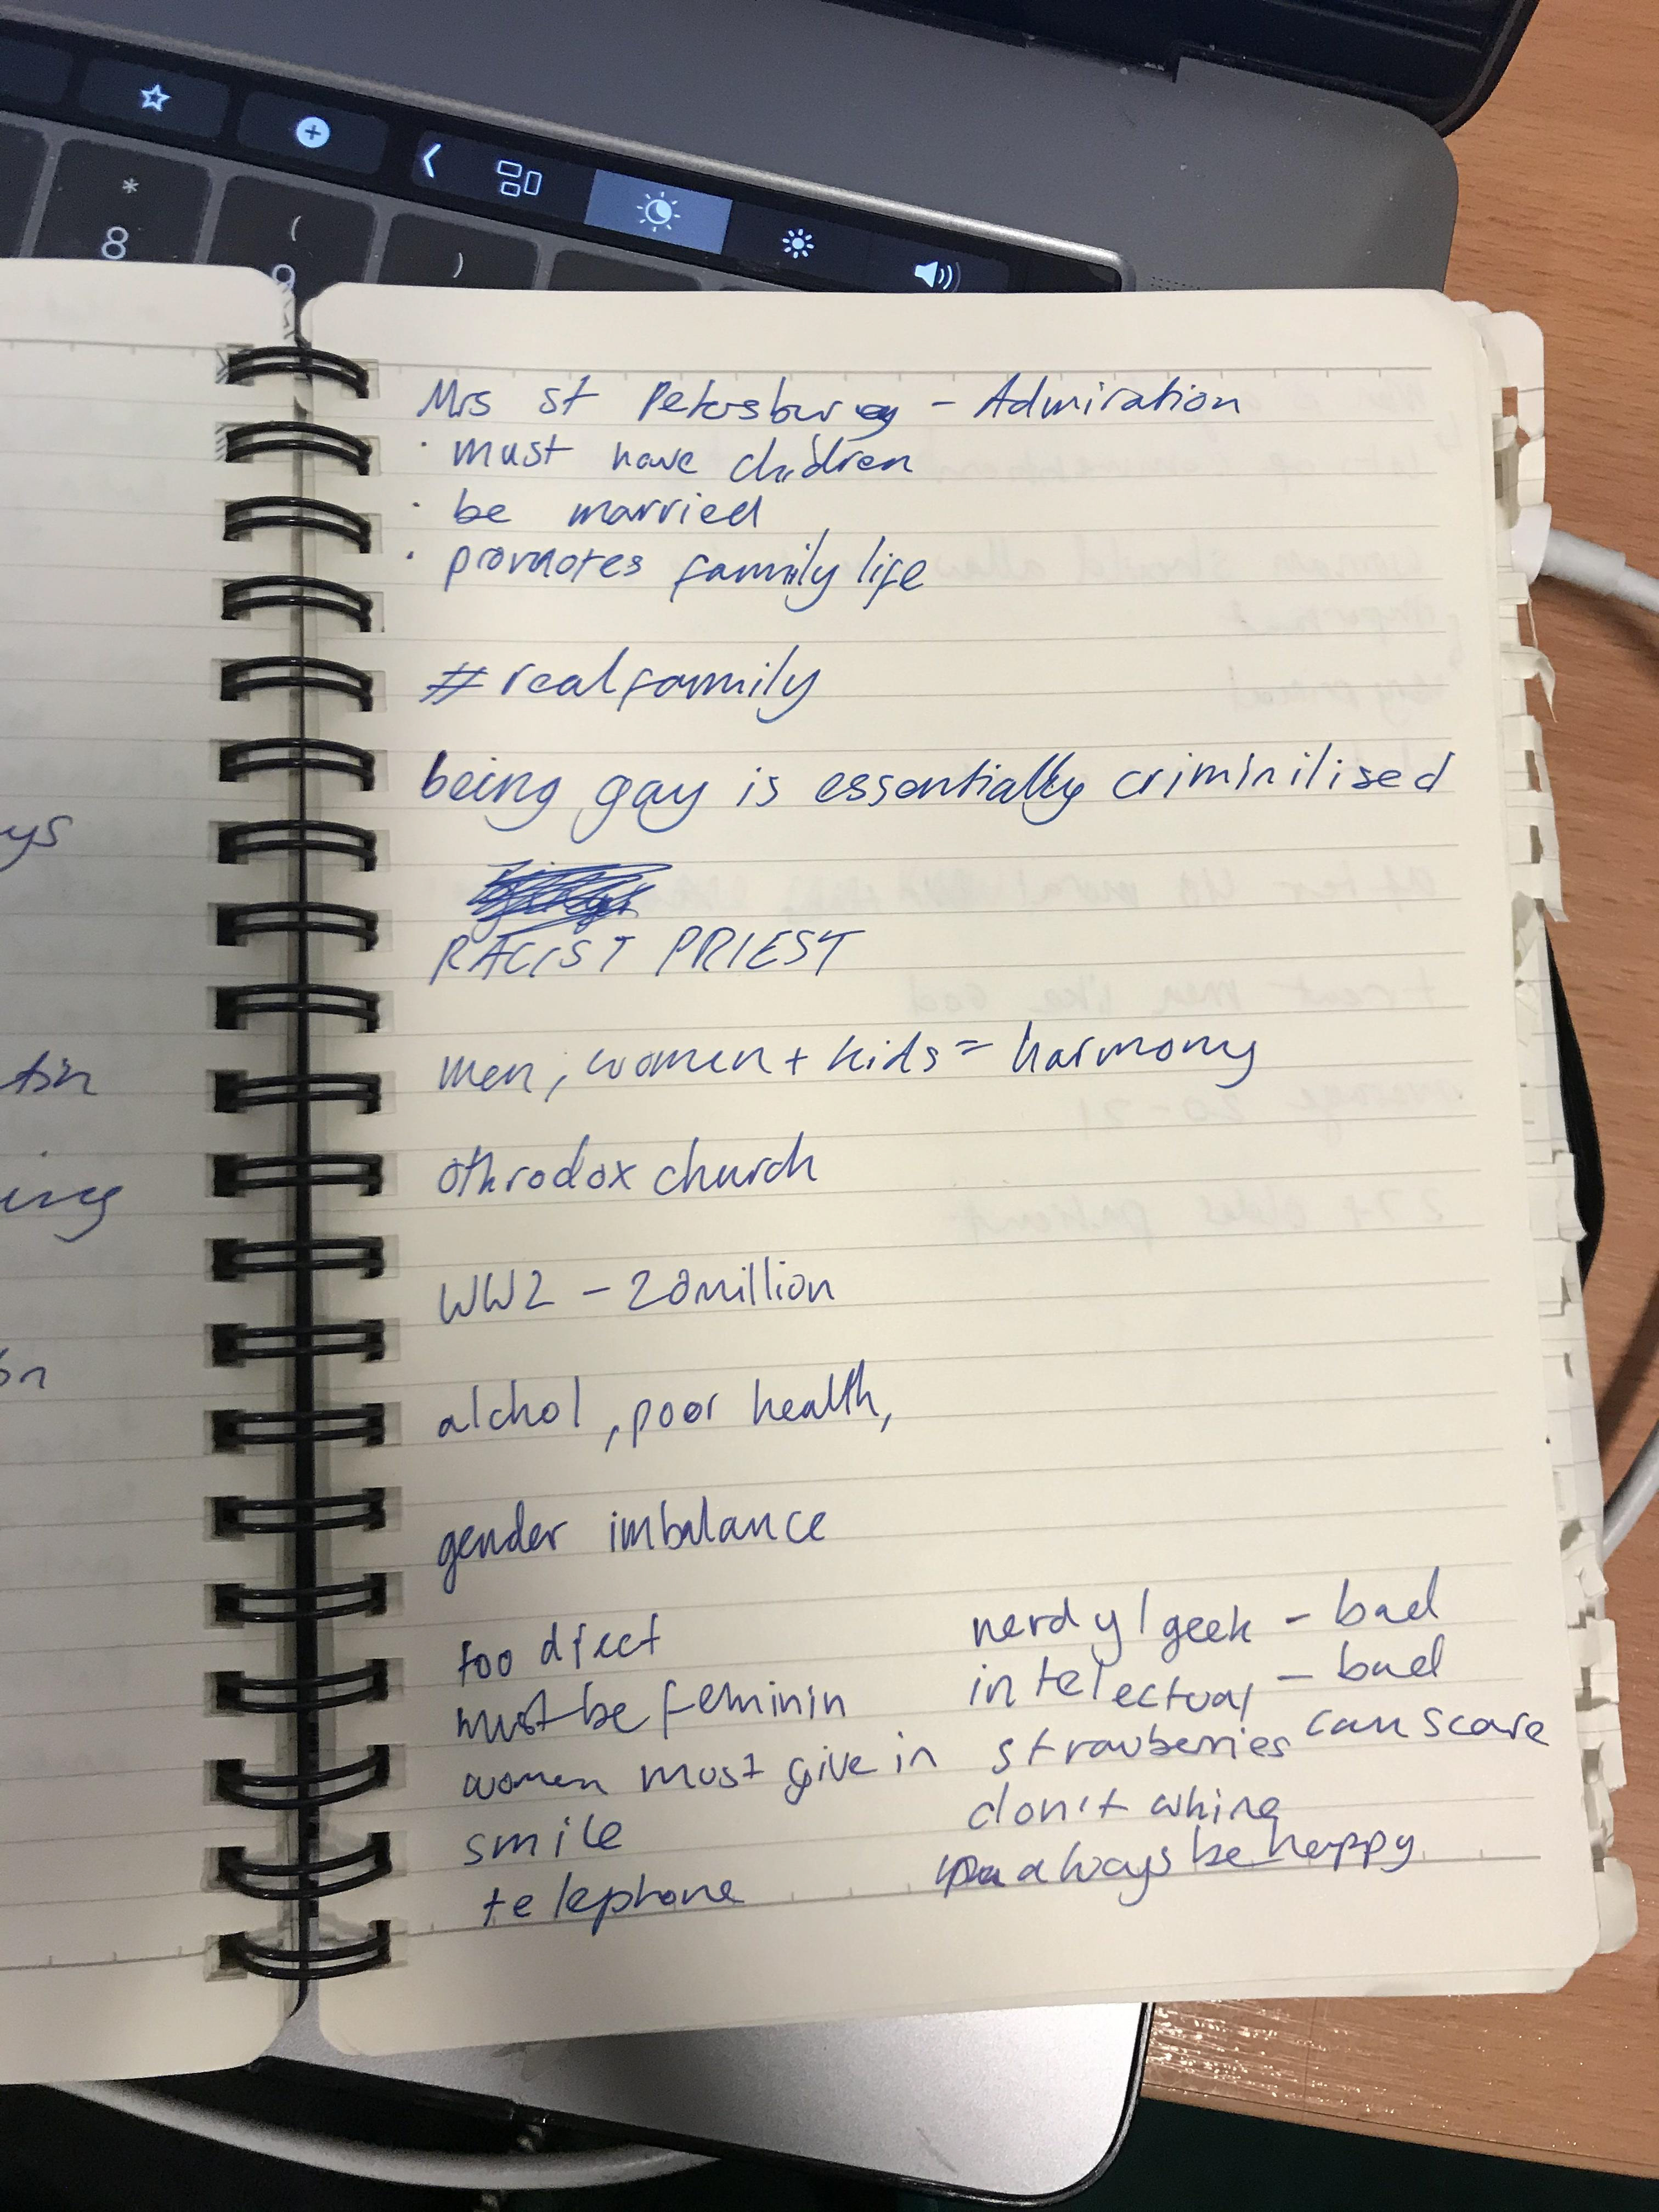 *
8
(
9
)
ys
tin
ing
on
Mrs st Petersburg - Admiration
· must have children
· be married
· promotes family life
#realfamily
being gay is essentially criminilised
RACIST PRIEST
men, women + kids = harmony
othrodox church
WW2 - 20million
alchol, poor health,
gender imbalance
too direct
must be feminin
women must give in
smile
telephone
nerdy/geek - bad
intelectual - bad
strawberries can scare
don't whine
always be happy